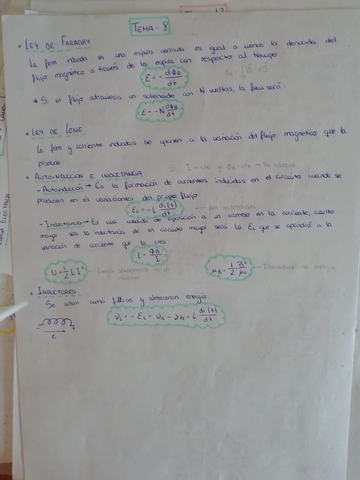 TEMA-8
• LEY DE FARADAY
La fem inducida en una espira cerrada es igual a menos la derivada del
flujo magnético a través de la espira con respecto al tiempo
ε = - dΦB/dt
• Si el flujo atraviesa un solenoide con N vueltas, la fem será:
ε = -N dΦB/dt
• LEY DE LENZ
La fem y corriente inducidas se oponen a la variación del flujo magnético que la
produce
• AUTOINDUCCIÓN E INDUCTANCIA
- Autoinducción → Es la formación de corrientes inducidas en el circuito cuando se
producen en él variaciones del propio flujo
εL = -L di(t)/dt
- Inductancia → Es una medida de oposición a un cambio en la corriente, cuanto
mayor sea la inductancia de un circuito mayor será la εL que se opondrá a la
variación de corriente que la crea
L = ΦB/I
U = 1/2 L I²
• INDUCTORES
Se usan como filtros y almacenan energía
di(t)/dt